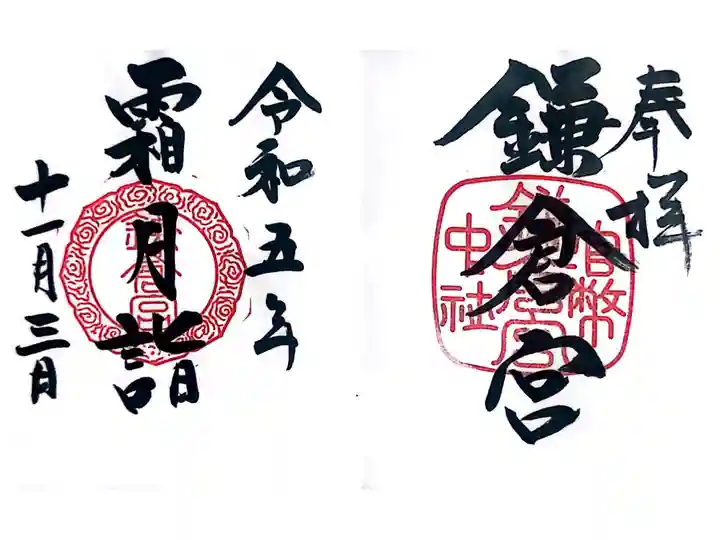 奉拝
鎌倉宮
官幣
鎌倉宮
中社
令和五年
霜月詣
鎌倉宮
十一月三日